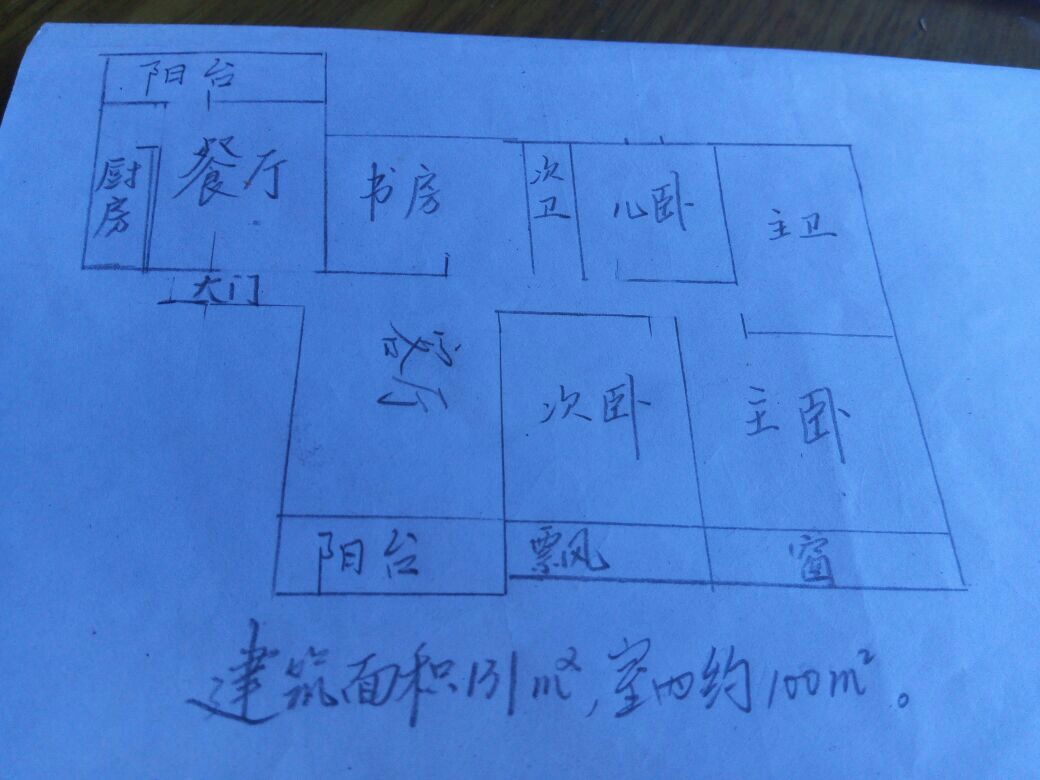 阳台
厨房
餐厅
书房
次卫
儿卧
主卫
大门
客厅
次卧
主卧
阳台
飘窗
建筑面积131m²,室内约100m²。